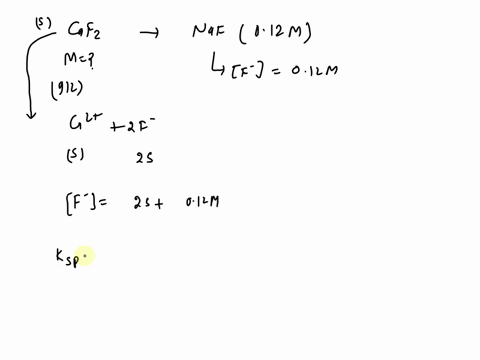 (s) CaF2 → NaF (0.12M)
M=? ↳ [F-] = 0.12M
(g/L)
Ca2+ + 2F-
(s) 2s
[F-] = 2s + 0.12M
Ksp